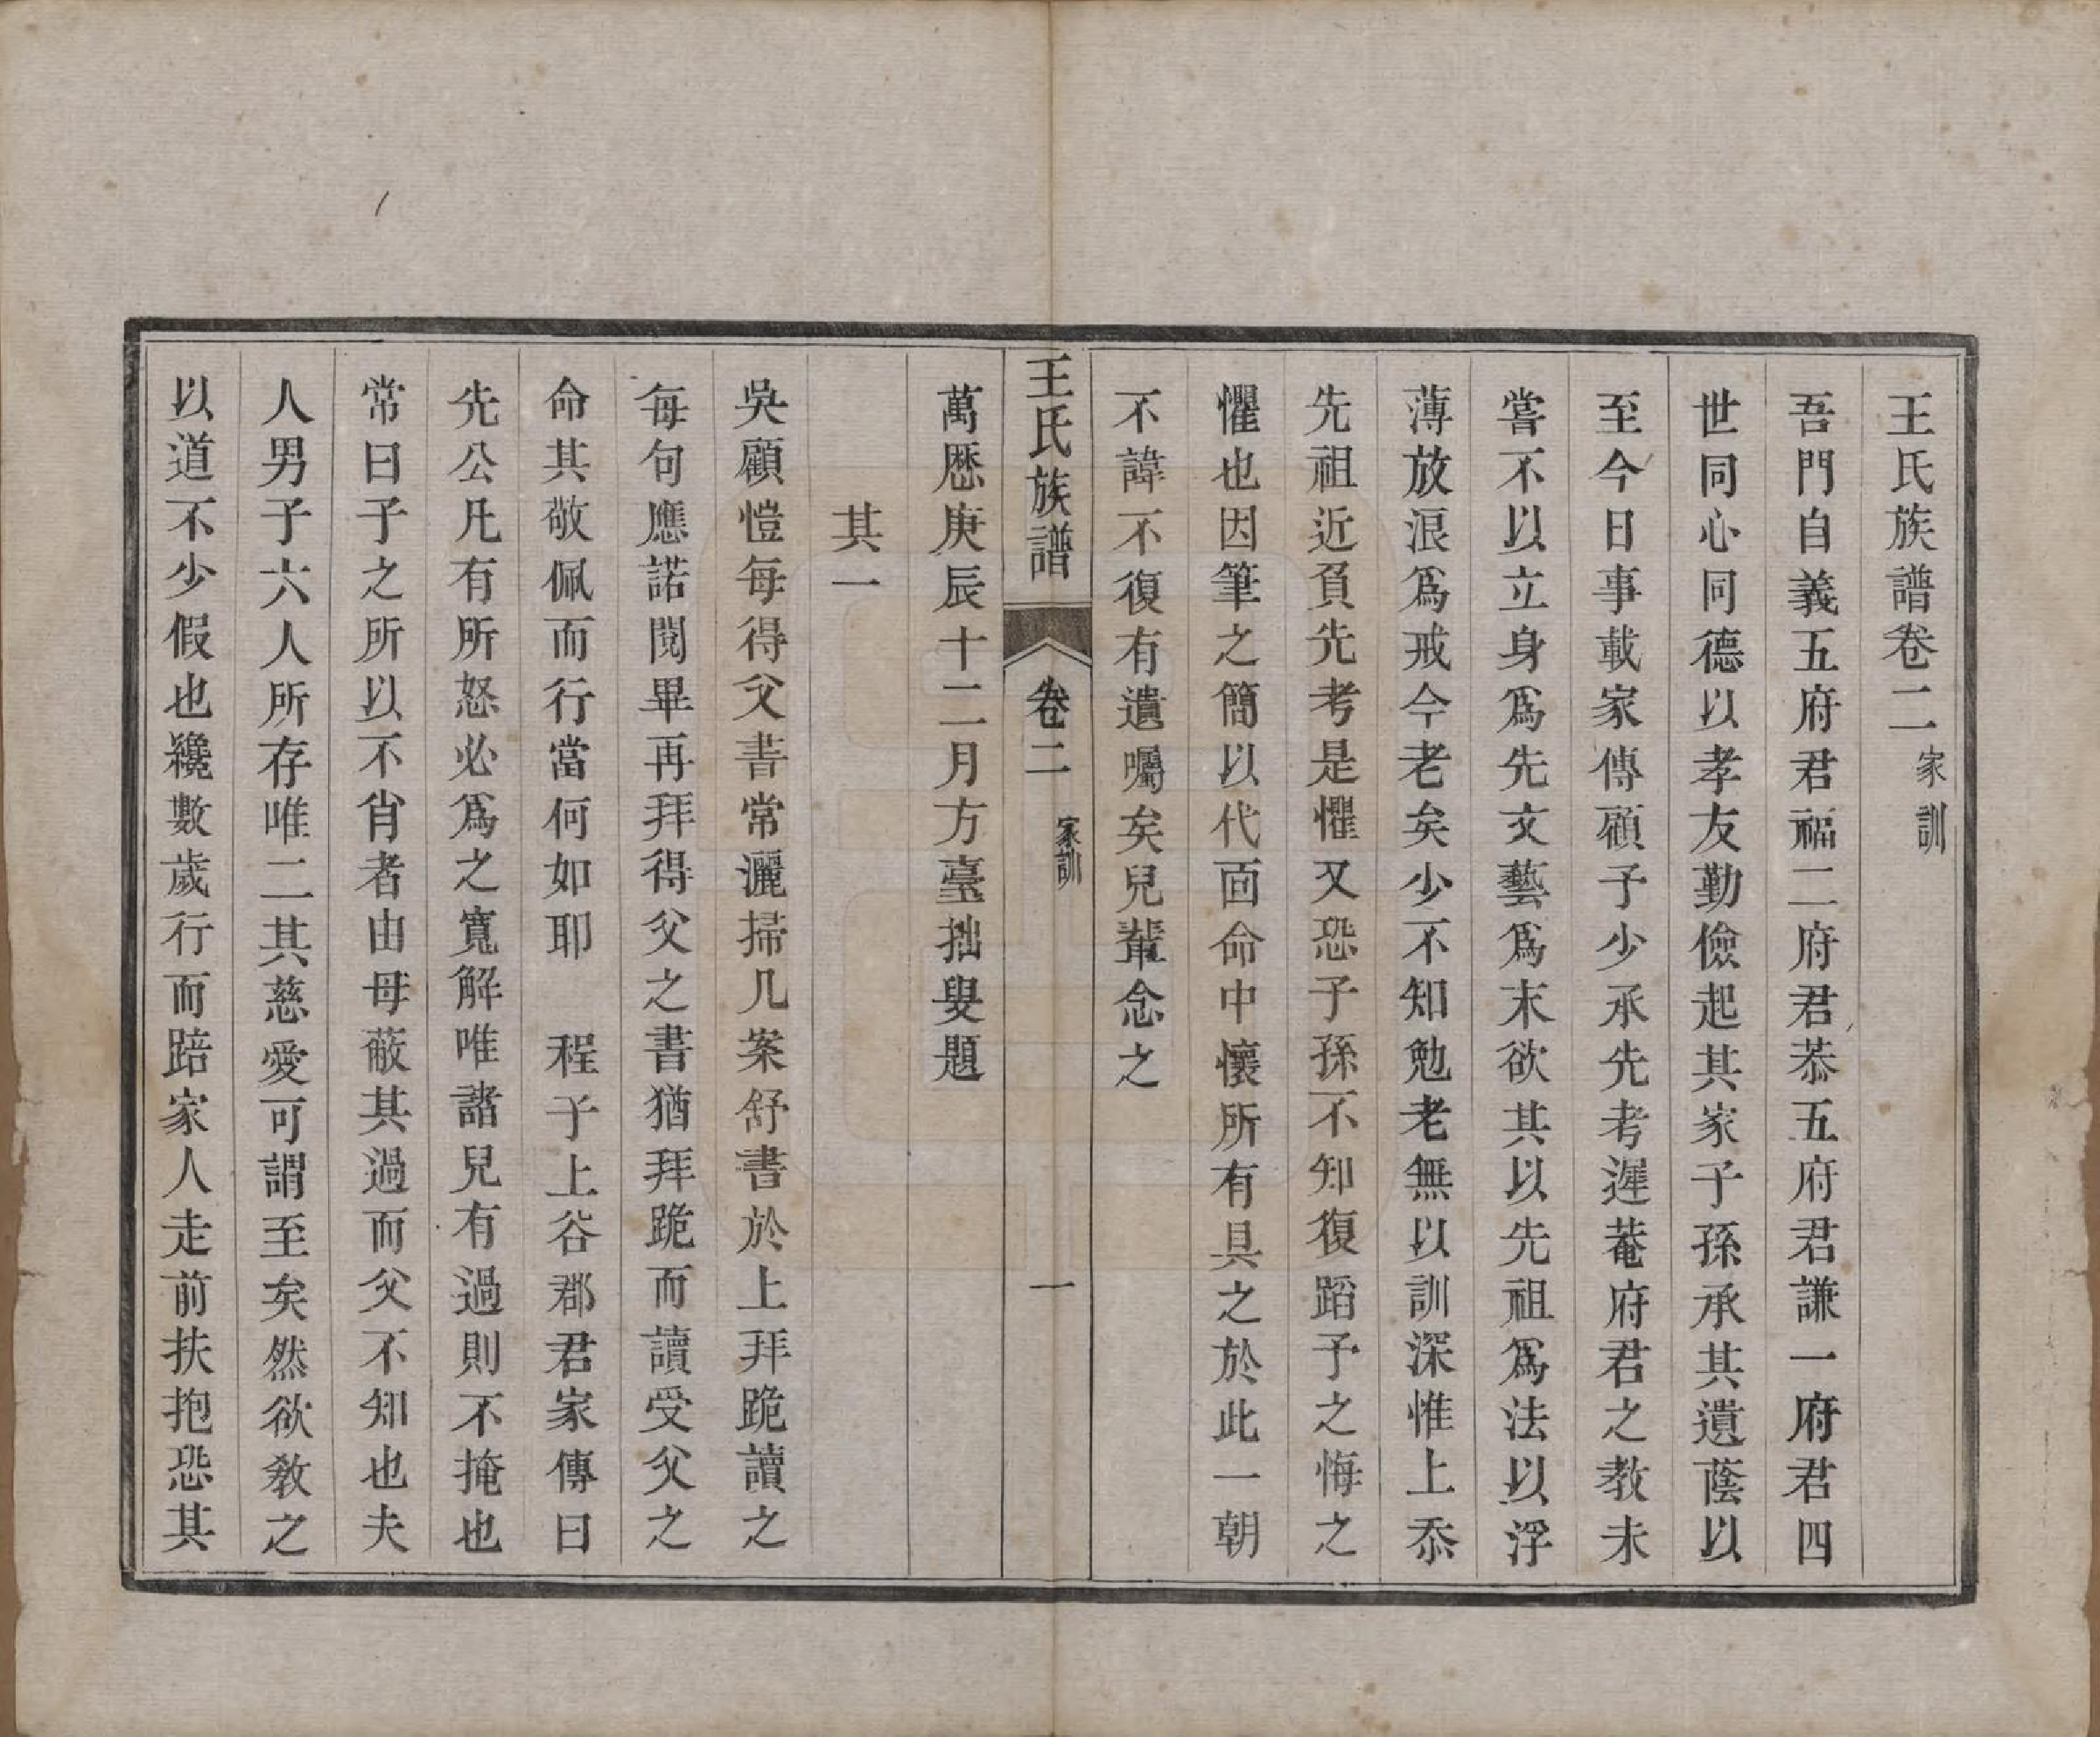 王氏族譜卷二 家訓
吾門自義五府君福二府君恭五府君謙一府君四
世同心同德以孝友勤儉起其家子孫承其遺蔭以
至今日事載家傳顧予少承先考遲菴府君之教未
嘗不以立身爲先文藝爲末欲其以先祖爲法以浮
薄放浪爲戒今老矣少不知勉老無以訓深惟上忝
先祖近負先考是懼又恐子孫不知復蹈予之悔之
懼也因筆之簡以代面命中懷所有具之於此一朝
不諱不復有遺囑矣兒輩念之
王氏族譜 卷二 家訓 一
萬厯庚辰十二月方臺拙叟題
其一
吳顧愷每得父書常灑掃几案舒書於上拜跪讀之
每句應諾閱畢再拜得父之書猶拜跪而讀受父之
命其敬佩而行當何如耶 程子上谷郡君家傳曰
先公凡有所怒必爲之寬解唯諸兒有過則不掩也
常曰子之所以不肖者由母蔽其過而父不知也夫
人男子六人所存唯二其慈愛可謂至矣然欲教之
以道不少假也纔數歲行而踣家人走前扶抱恐其